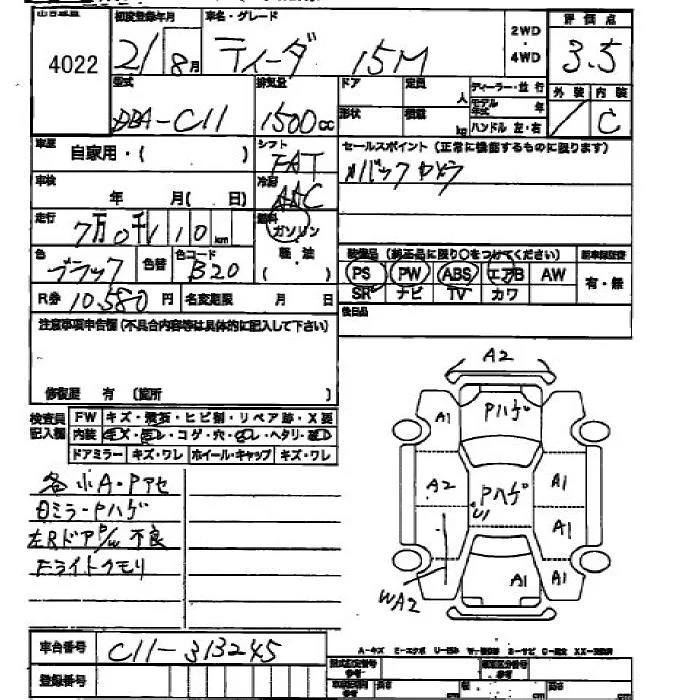 4022
初度登録年月
21/8月
車名・グレード
ティーダ 15M
2WD
・
4WD
評価点
3.5
型式
DBA-C11
排気量
1500cc
ドア
定員
人
ディーラー・並行
モデル年式 年
ハンドル 左・右
形状
積載
kg
外装
内装
C
車歴
自家用・( )
シフト
FAT
セールスポイント(正常に機能するものに限ります)
バックカメラ
車検
年 月(日)
冷房
AAC
走行
7万0千110km
燃料
ガソリン
軽・油
( )
色
ブラック
色替
色コード
B20
装備品(純正品に限り○をつけてください)
PS PW ABS エアB AW
SR ナビ TV カワ
新車保証書
有・無
R券 10.580円
名変期限 月 日
後日品
注意事項申告欄(不具合内容等は具体的に記入して下さい)
修復歴 有 〔箇所 〕
検査員記入欄
FW キズ・飛石・ヒビ割・リペア跡・X要
内装 キズ・汚レ・コゲ・穴・ ・ヘタリ・
ドアミラー キズ・ワレ ホイール・キャップ キズ・ワレ
各小A・Pアセ
ミラーPハゲ
左RドアP/W不良
Fライトクモリ
A2
A1
Pハゲ
A2
Pハゲ
U1
A1
A1
A1
A1
WA2
車台番号
C11-313245
登録番号
A-キズ
型式指定番号
参考
類別区分番号
参考
長さ
cm
幅
cm
高さ
cm